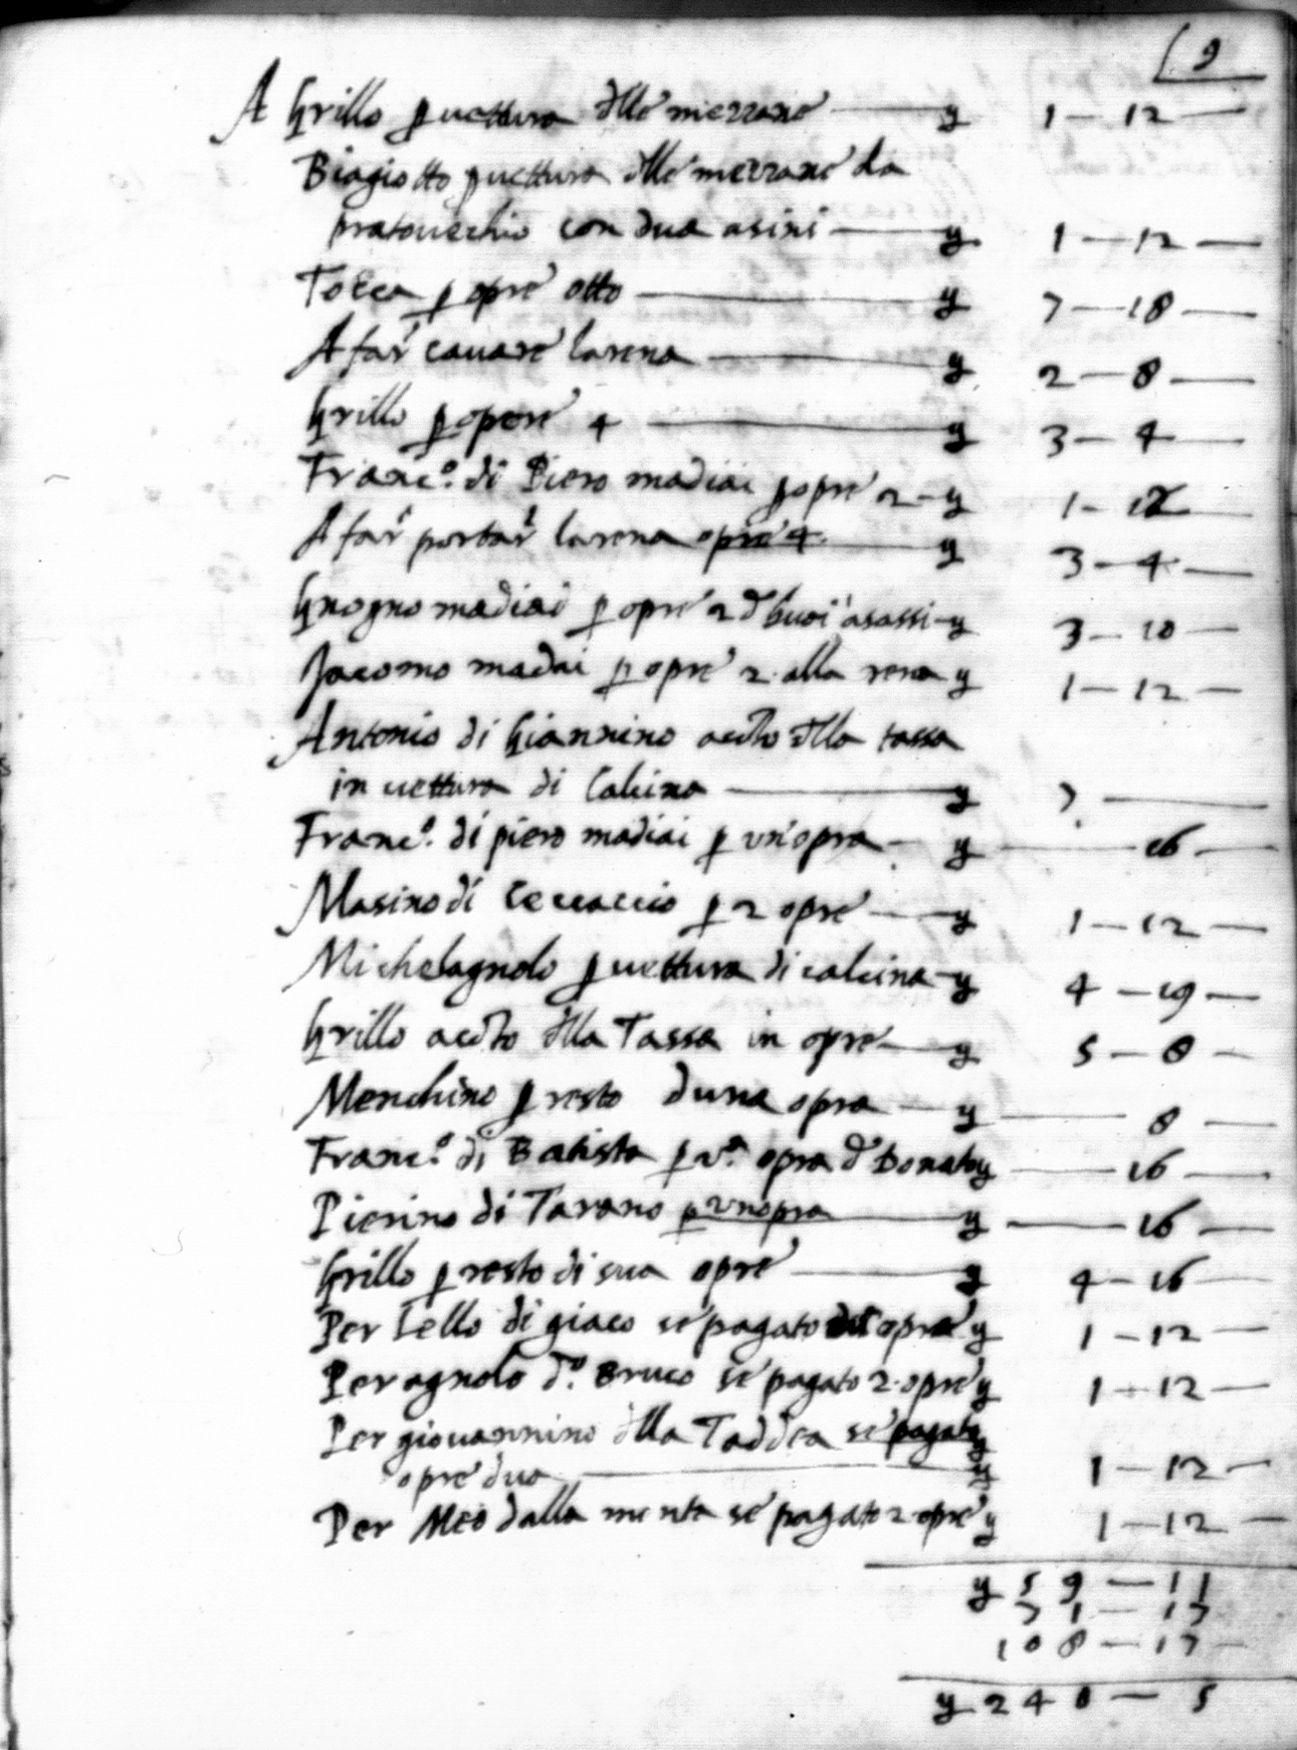 9
A Grillo p vettura dlle mezzane — y 1 — 12 —
Biagiotto p vettura dlle mezzane da
pratovechio con dua asini — y 1 — 12 —
Tocca p opre otto — y 7 — 18 —
A far cavare larena — y 2 — 8 —
Grillo p opere 4 — y 3 — 4 —
Franc.º di Piero madiai p opre 2 — y 1 — 12 —
A far portar larena opre 4 — y 3 — 4 —
Gnogno madiai p opre 2 d buoi a sassi — y 3 — 10 —
Jacomo madai p opre 2 alla rena y 1 — 12 —
Antonio di Giannino acōto dlla tassa
in vettura di Calcina — y 7 —
Franc.º di piero madiai p un'opra — y — 16 —
Masino di Ceccaccio p 2 opre — y 1 — 12 —
Michelagnolo p vettura di calcina — y 4 — 19 —
Grillo acōto dlla Tassa in opre — y 5 — 8 —
Menchino p resto duna opra — y — 8 —
Franc.º di Batista p vª opra d Donato y — 16 —
Pierino di Tarano p un opra — y — 16 —
Grillo p resto di sua opre — y 4 — 16 —
Per Lello di giaco se pagato opre y 1 — 12 —
Per agnolo d.º Bruco se pagato 2 opre y 1 — 12 —
Per giovannino dlla Taddea se pagato
opre dua — y 1 — 12 —
Per Meo dalla menta se pagato 2 opre y 1 — 12 —
y 59 — 11
71 — 17
108 — 17 —
y 240 — 5